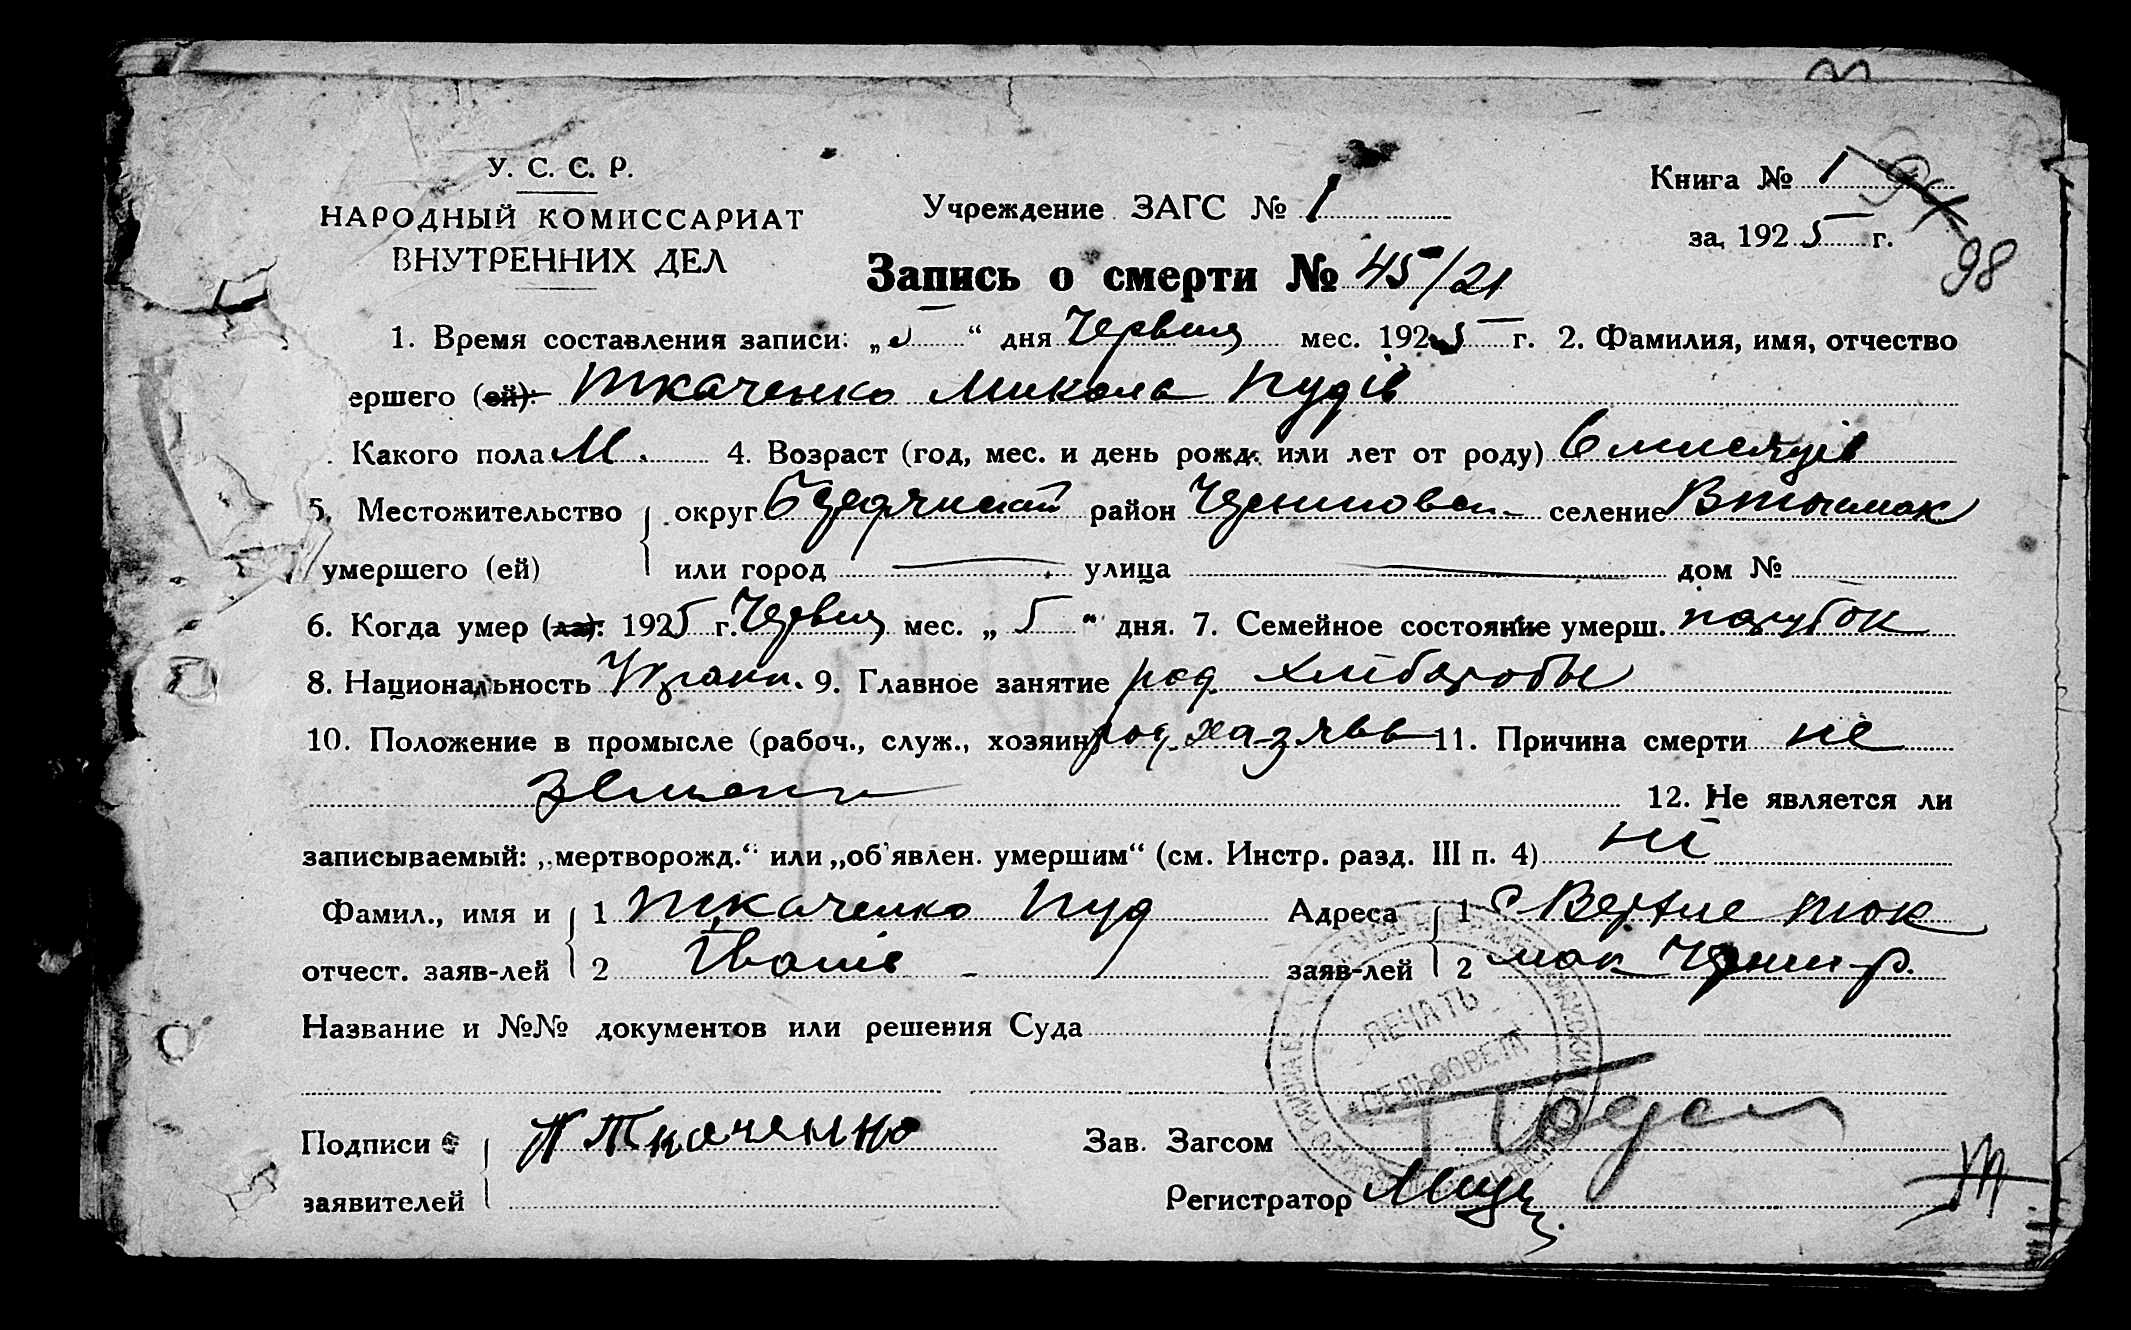 У. С. С. Р.
НАРОДНЫЙ КОМИССАРИАТ
ВНУТРЕННИХ ДЕЛ
Учреждение ЗАГС № 1
Книга № 1 94
за 1925 г.
98
Запись о смерти № 45/21
1. Время составления записи: „5“ дня Червця мес. 1925 г. 2. Фамилия, имя, отчество
ершего (ей): Ткаченко Микола Пудів
Какого пола М. 4. Возраст (год, мес. и день рожд. или лет от роду) 6 мисяців
5. Местожительство округ район селение Втокмак
умершего (ей) или город улица дом №
6. Когда умер (ла): 1925 г. Червця мес. „5“ дня. 7. Семейное состояние умерш. парубок
8. Национальность Украин. 9. Главное занятие род. хлиборобы
10. Положение в промысле (рабоч., служ., хозяин) род. хазяевв 11. Причина смерти не
12. Не является ли
записываемый: „мертворожд.“ или „об'явлен. умершим“ (см. Инстр. разд. III п. 4) ні
Фамил., имя и 1 Ткаченко Пуд Адреса 1 с Верхне Ток
отчест. заяв-лей 2 Іванів заяв-лей 2 мак р.
Название и №№ документов или решения Суда
ПЕЧАТЬ
СЕЛЬСОВЕТА
Подписи П Ткаченко Зав. Загсом
заявителей Регистратор